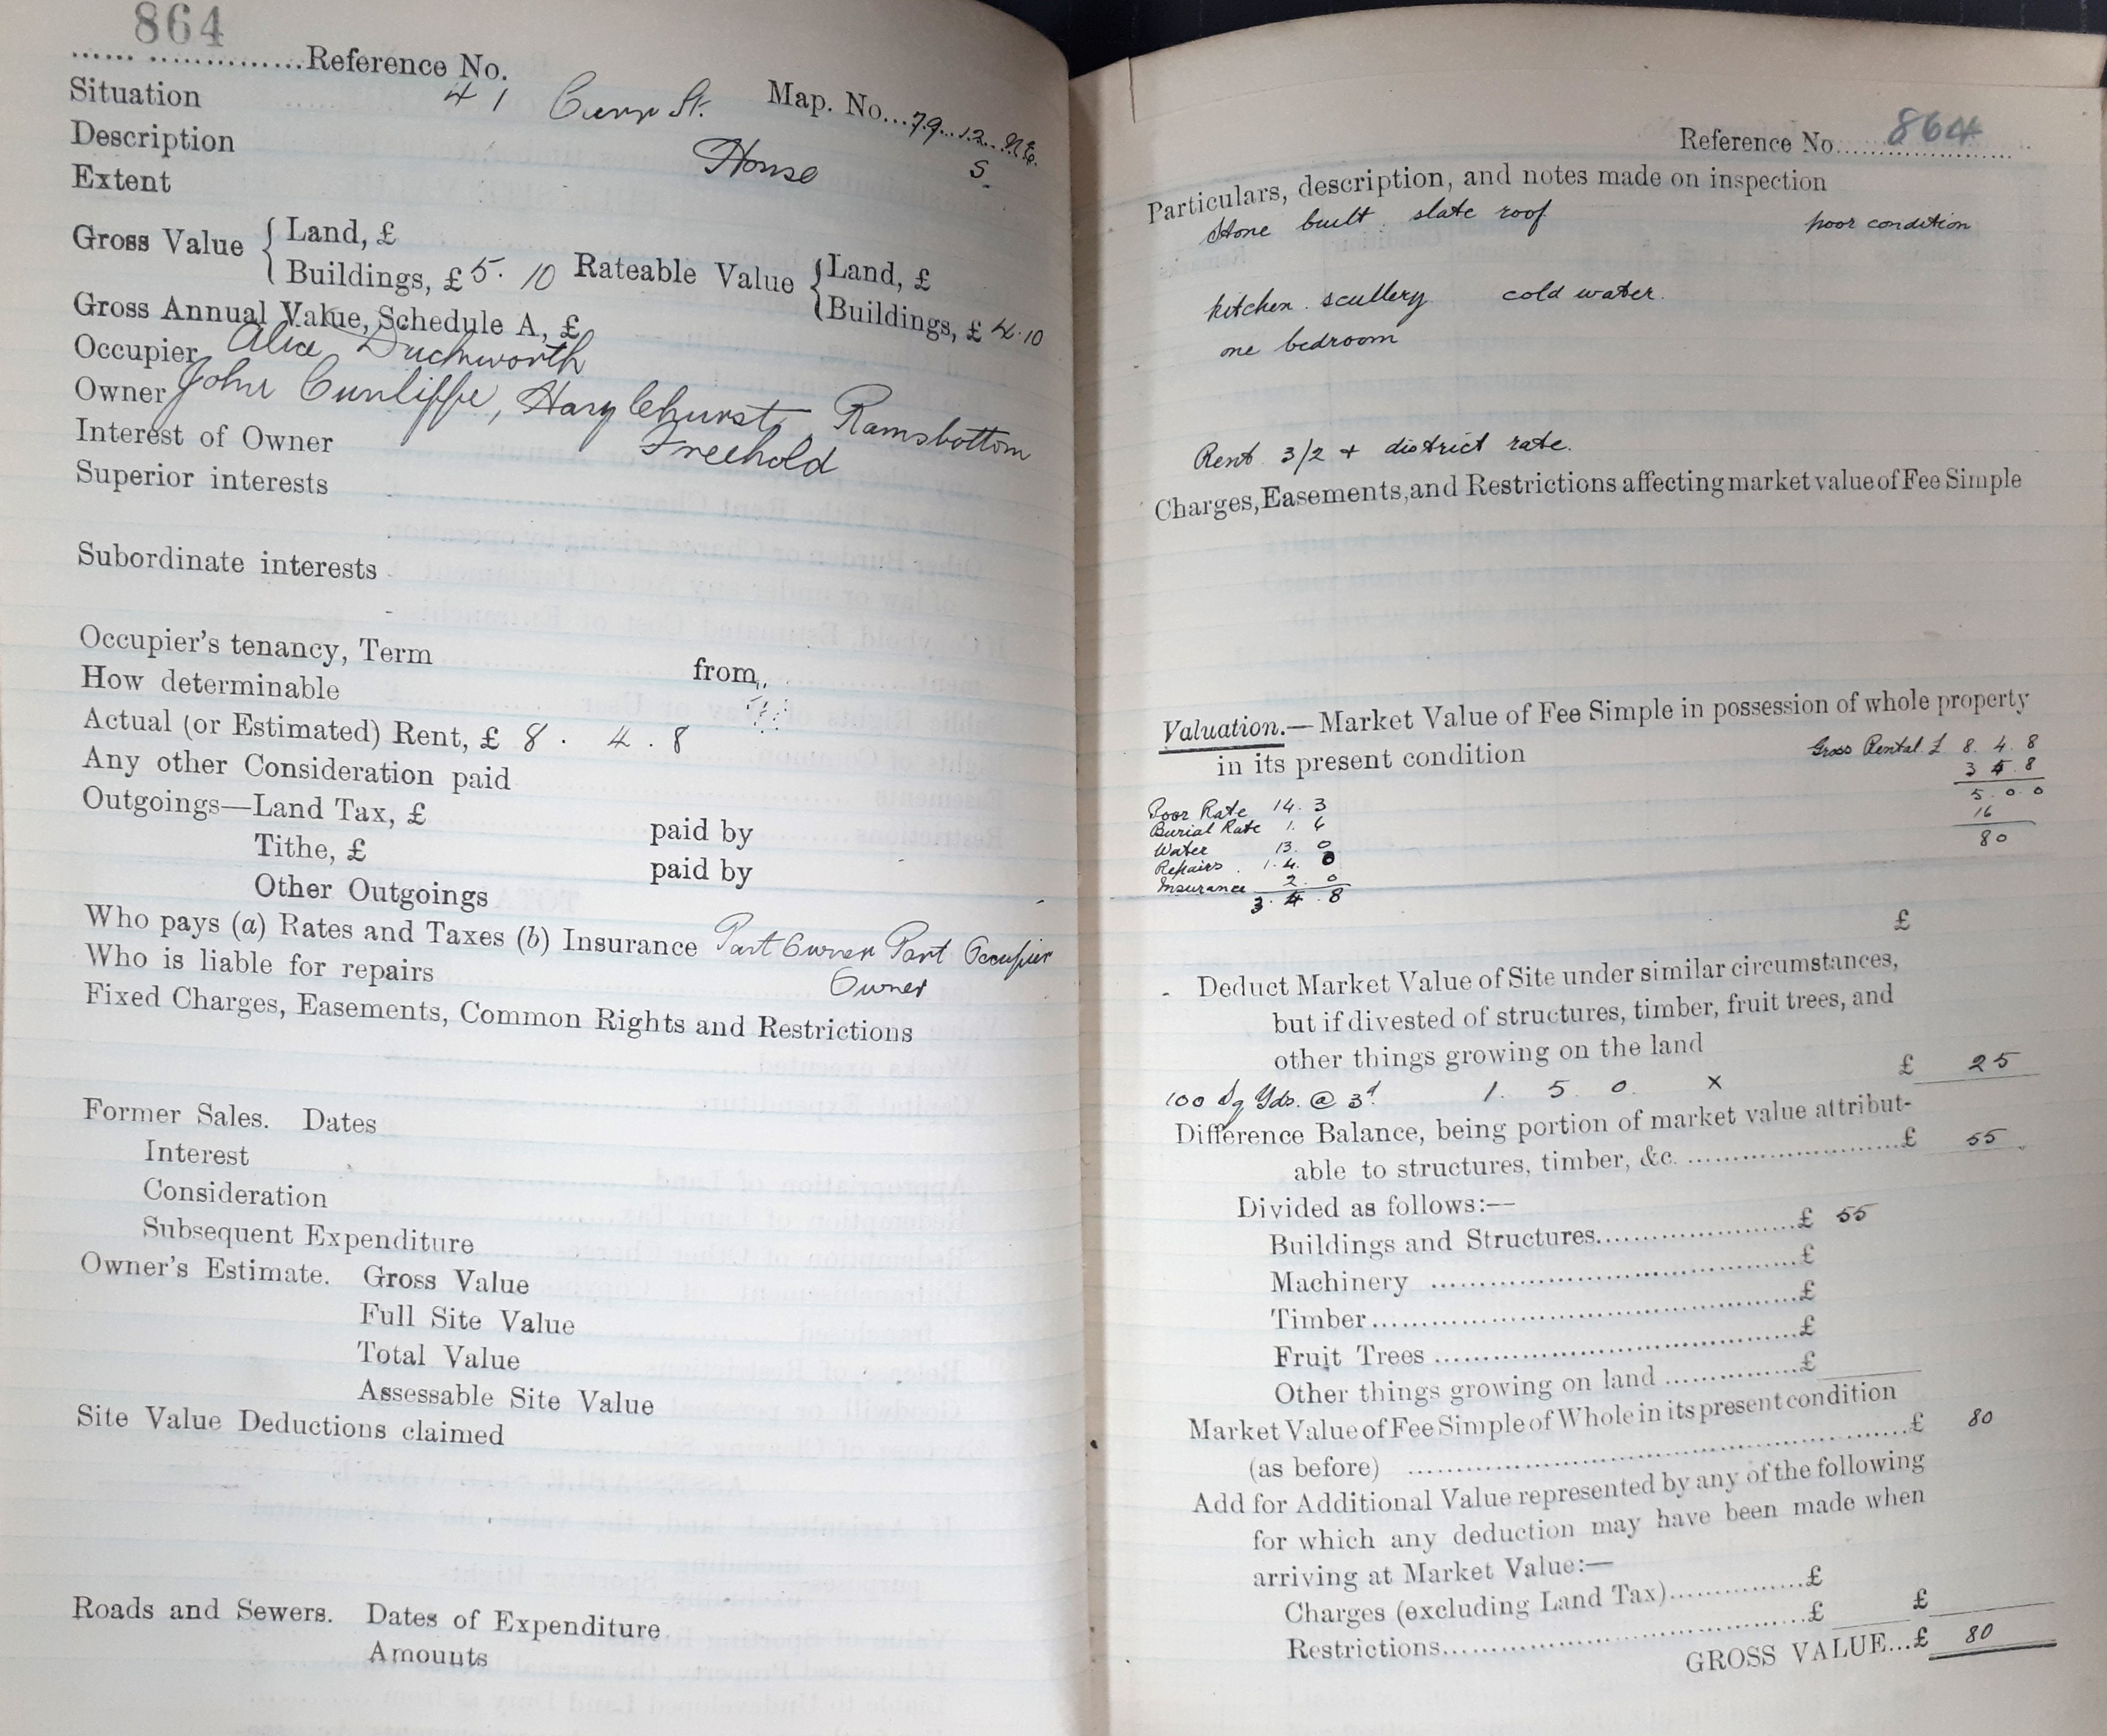 864
...... ..............Reference No.
Situation 41 Camp St. Map. No...79..12..N.E.
Description House S.
Extent
Gross Value { Land, £
Buildings, £ 5. 10 Rateable Value { Land, £
Buildings, £ 4.10
Gross Annual Value, Schedule A, £
Occupier Alice Duckworth
Owner John Cunliffe, Hazlehurst, Ramsbottom
Interest of Owner Freehold
Superior interests
Subordinate interests
Occupier's tenancy, Term from
How determinable
Actual (or Estimated) Rent, £ 8. 4. 8
Any other Consideration paid
Outgoings—Land Tax, £ paid by
Tithe, £ paid by
Other Outgoings
Who pays (a) Rates and Taxes (b) Insurance Part Owner Part Occupier
Who is liable for repairs Owner
Fixed Charges, Easements, Common Rights and Restrictions
Former Sales. Dates
Interest
Consideration
Subsequent Expenditure
Owner's Estimate. Gross Value
Full Site Value
Total Value
Assessable Site Value
Site Value Deductions claimed
Roads and Sewers. Dates of Expenditure
Amounts
Reference No. 864
Particulars, description, and notes made on inspection
Stone built. slate roof poor condition
kitchen. scullery cold water.
one bedroom
Rent 3/2 + district rate.
Charges, Easements, and Restrictions affecting market value of Fee Simple
Valuation.—Market Value of Fee Simple in possession of whole property
in its present condition Gross Rental £ 8. 4. 8
3 4 8
5. 0. 0
16
80
Poor Rate 14. 3
Burial Rate 1.
Water 13. 0
Repairs. 1. 4. 0
Insurance 2. 0
3. 4. 8
£
Deduct Market Value of Site under similar circumstances,
but if divested of structures, timber, fruit trees, and
other things growing on the land £ 25
100 Sq Yds. @ 3d. 1. 5 0. x
Difference Balance, being portion of market value attribut-
able to structures, timber, &c. ........................£ 55
Divided as follows:—
Buildings and Structures....................£ 55
Machinery ....................................£
Timber.........................................£
Fruit Trees ...................................£
Other things growing on land .............£
Market Value of Fee Simple of Whole in its present condition
(as before) ..................................................£ 80
Add for Additional Value represented by any of the following
for which any deduction may have been made when
arriving at Market Value:—
Charges (excluding Land Tax)..............£
Restrictions...................................£ £
GROSS VALUE...£ 80